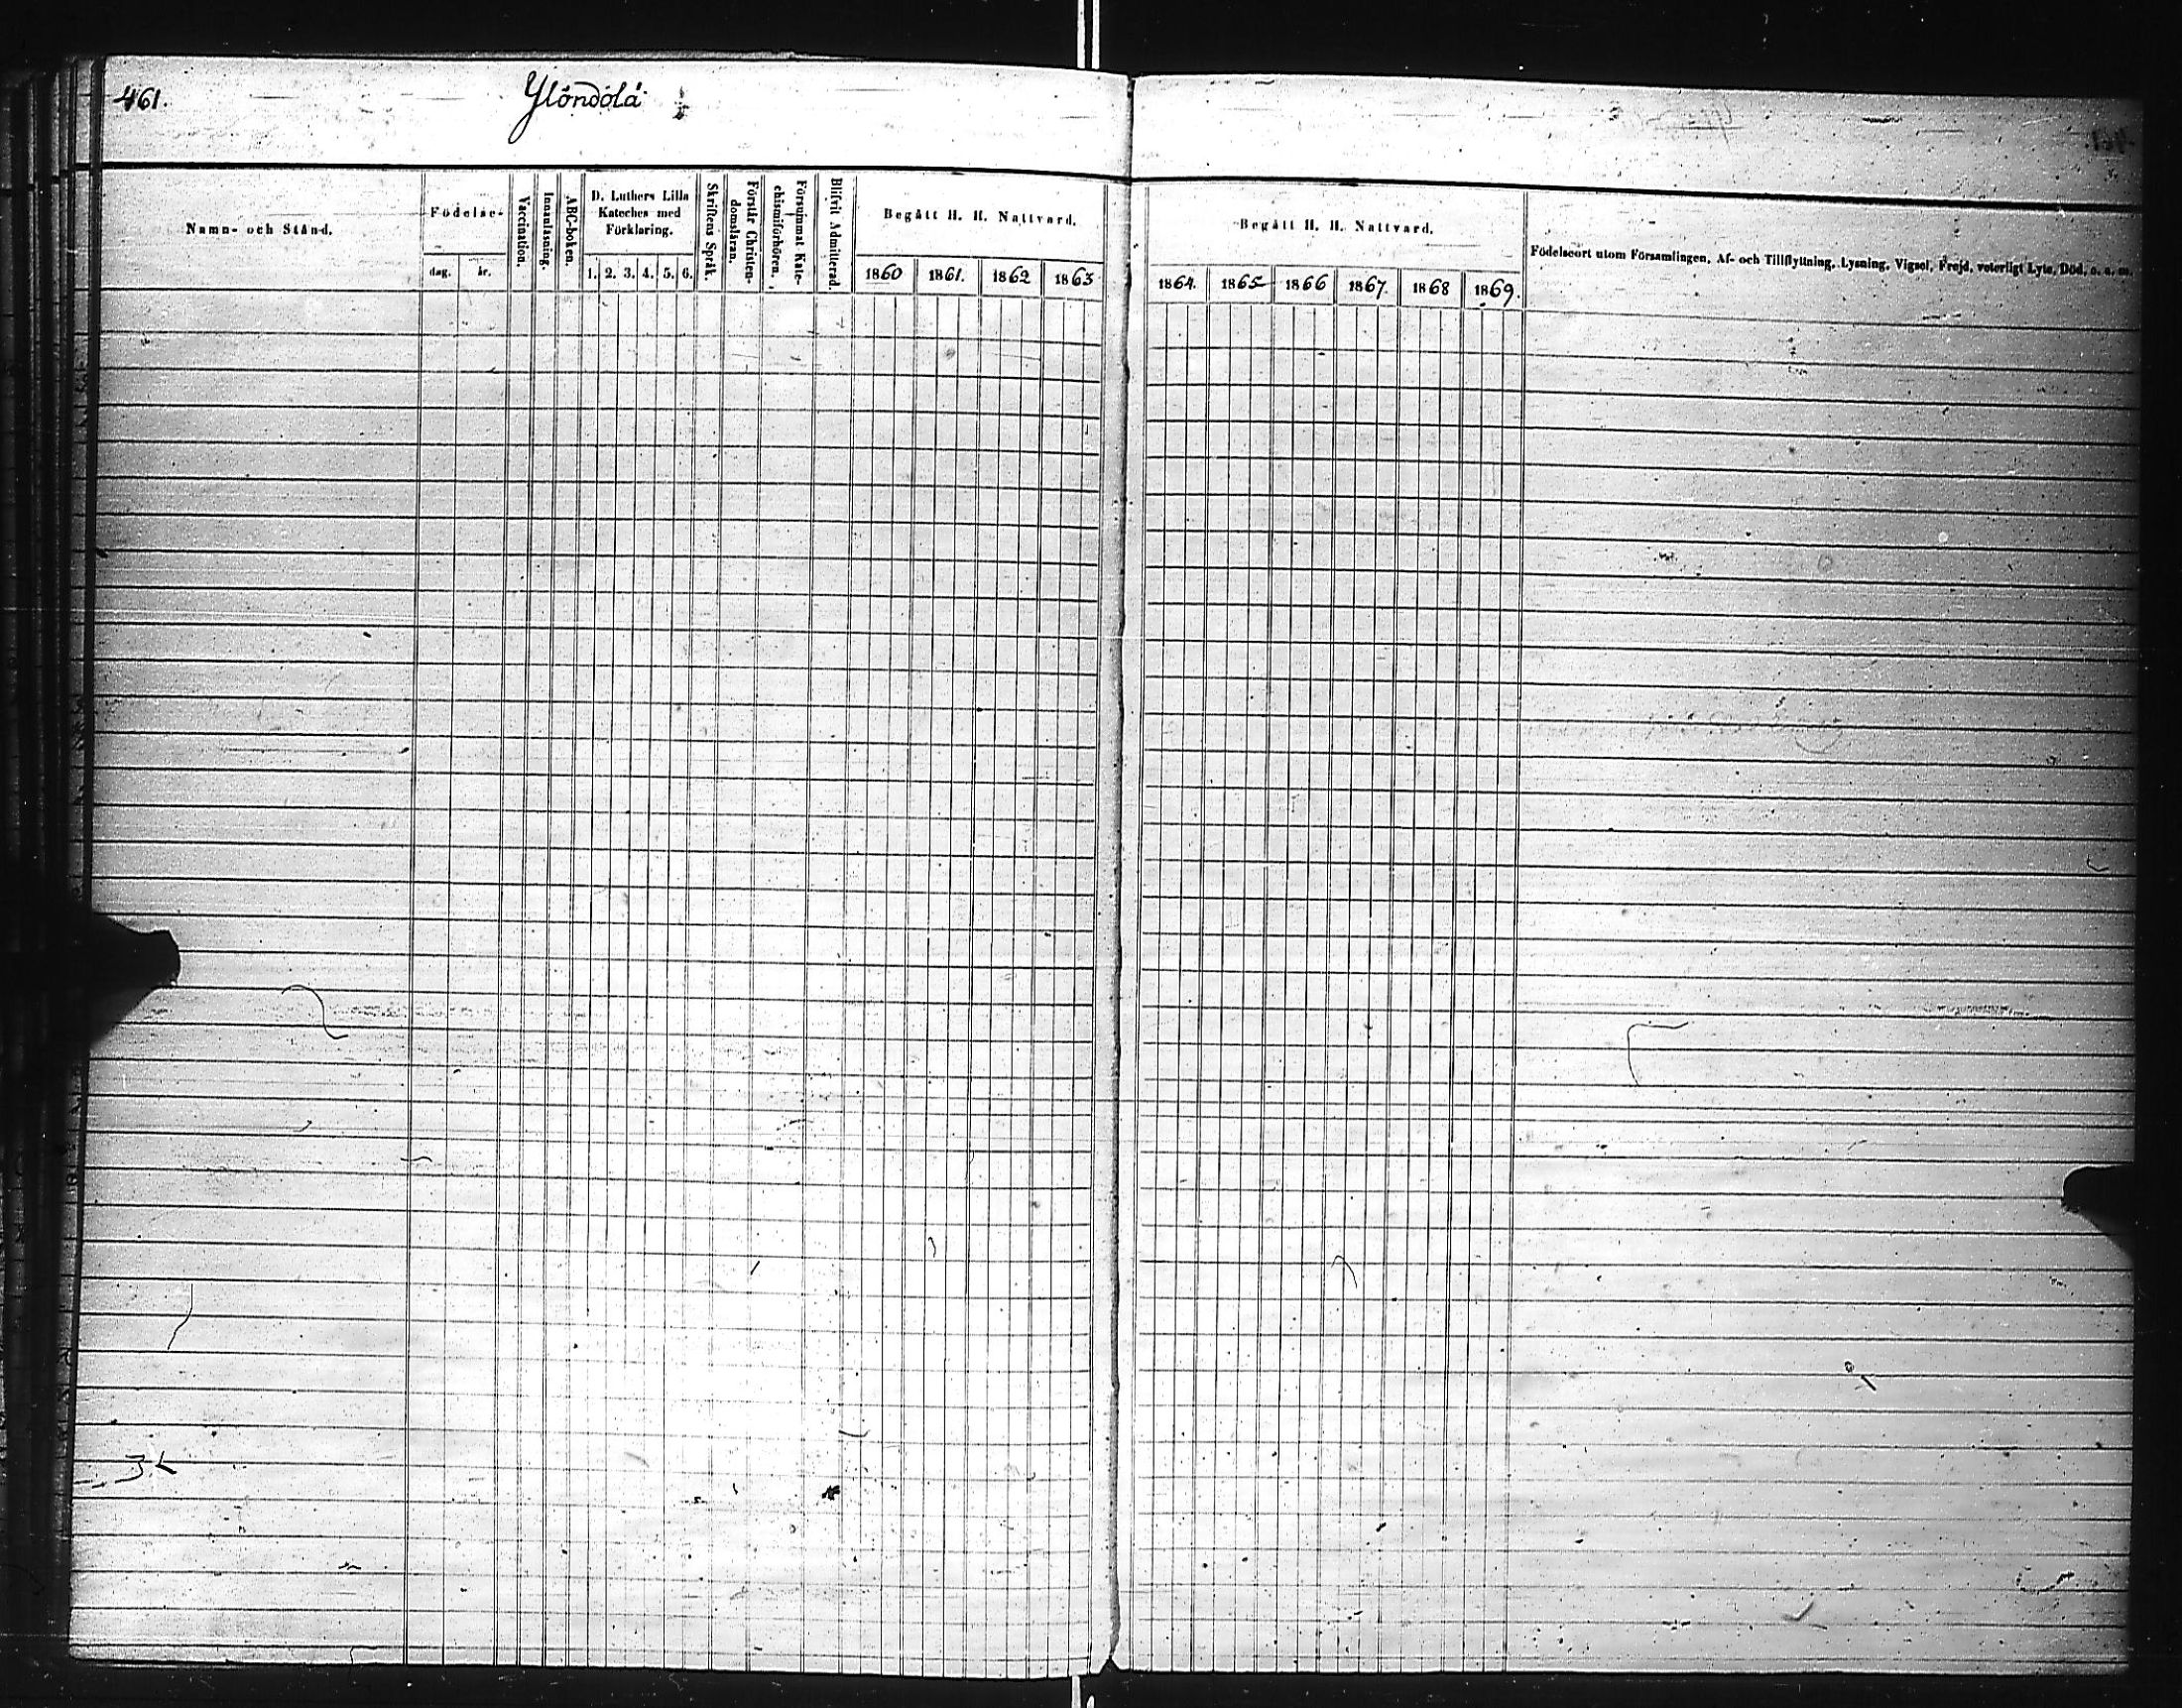 461.
Ylöndölä
Namn- och Stånd.
Födelse-
dag.
år.
Vaccination.
Innanläsning.
ABC-boken.
D. Luthers Lilla
Kateches med
Förklaring.
1. 2. 3. 4. 5. 6.
Skriftens Språk.
Förstår Christen-
domsläran.
Försummat Kate-
chismiförhören.
Blifvit Admitterad.
Begått H. H. Nattvard.
1860 1861. 1862 1863
Begått H. H. Nattvard.
1864. 1865 1866 1867. 1868 1869.
Födelseort utom Församlingen, Af- och Tillflyttning, Lysning, Vigsel, Frejd, veterligt Lyte, Död, o. s. m.